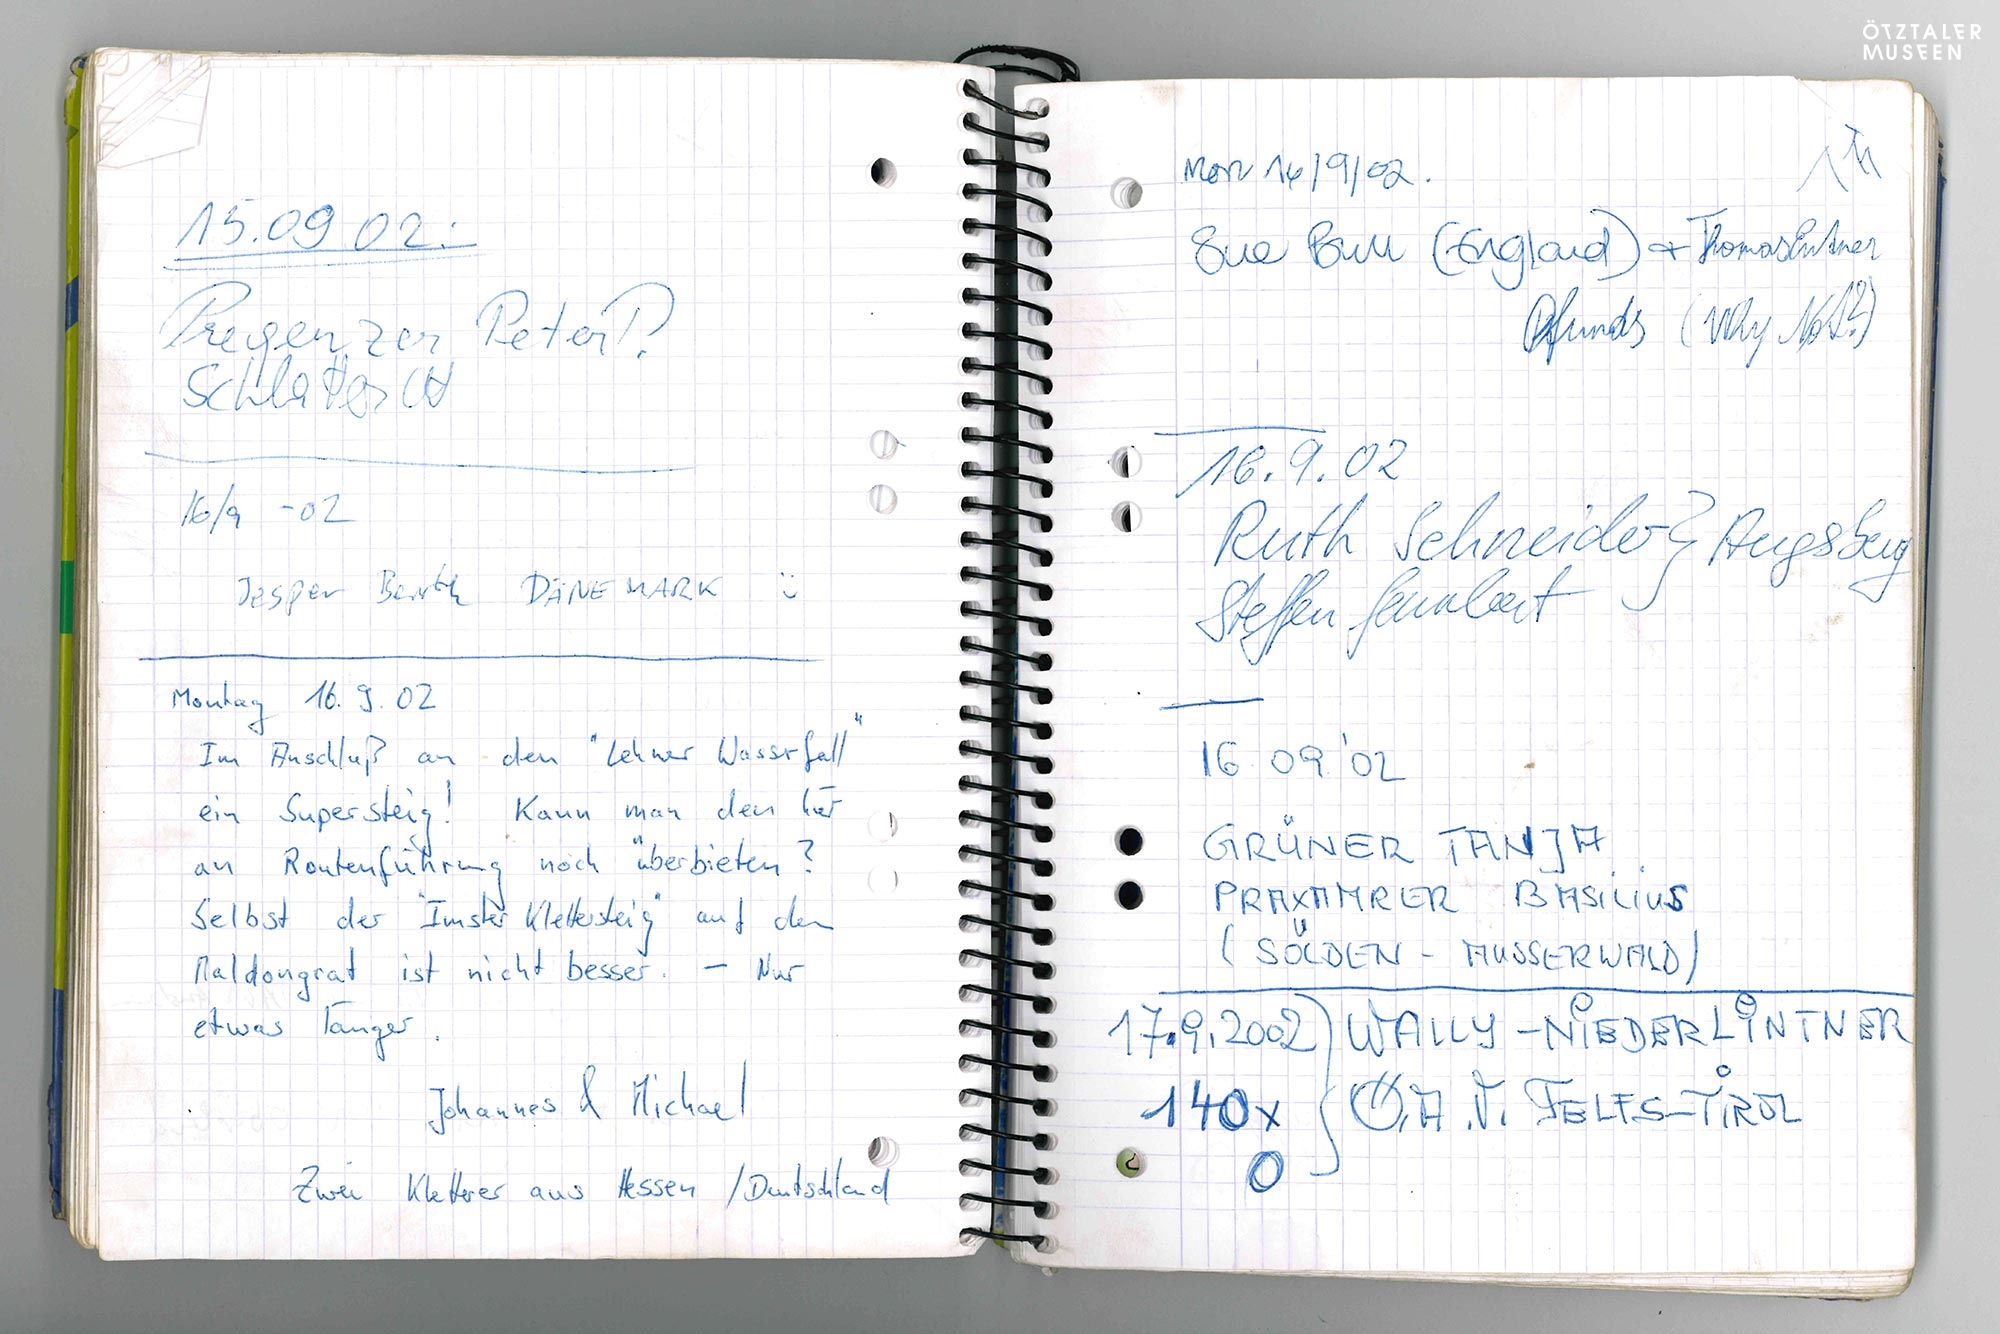 ÖTZTALER
MUSEEN
15.09 02:
Pregenzer Peter P.
16/9 -02
Jesper DÄNEMARK :)
Montag 16.9.02
Im Anschluß an den "Lehner Wasserfall"
ein Supersteig! Kann man den hier
an Routenführung noch überbieten?
Selbst der "Imster Klettersteig" auf den
Maldongrat ist nicht besser. – Nur
etwas länger.
Johannes & Michael
Zwei Kletterer aus Hessen /Deutschland
Mon 16/9/02.
Sue Bull (England) + Thomas
Pfunds (Why Not?)
16.9.02
Ruth Schneider } Augsburg
Steffen
16 09 '02
GRÜNER TANJA
PRAXMARER BASILIUS
(SÖLDEN - AUSSERWALD)
17.9.2002 } WALLY - NIEDERLINTNER
140x Ö.A.V. TELFS-TIROL